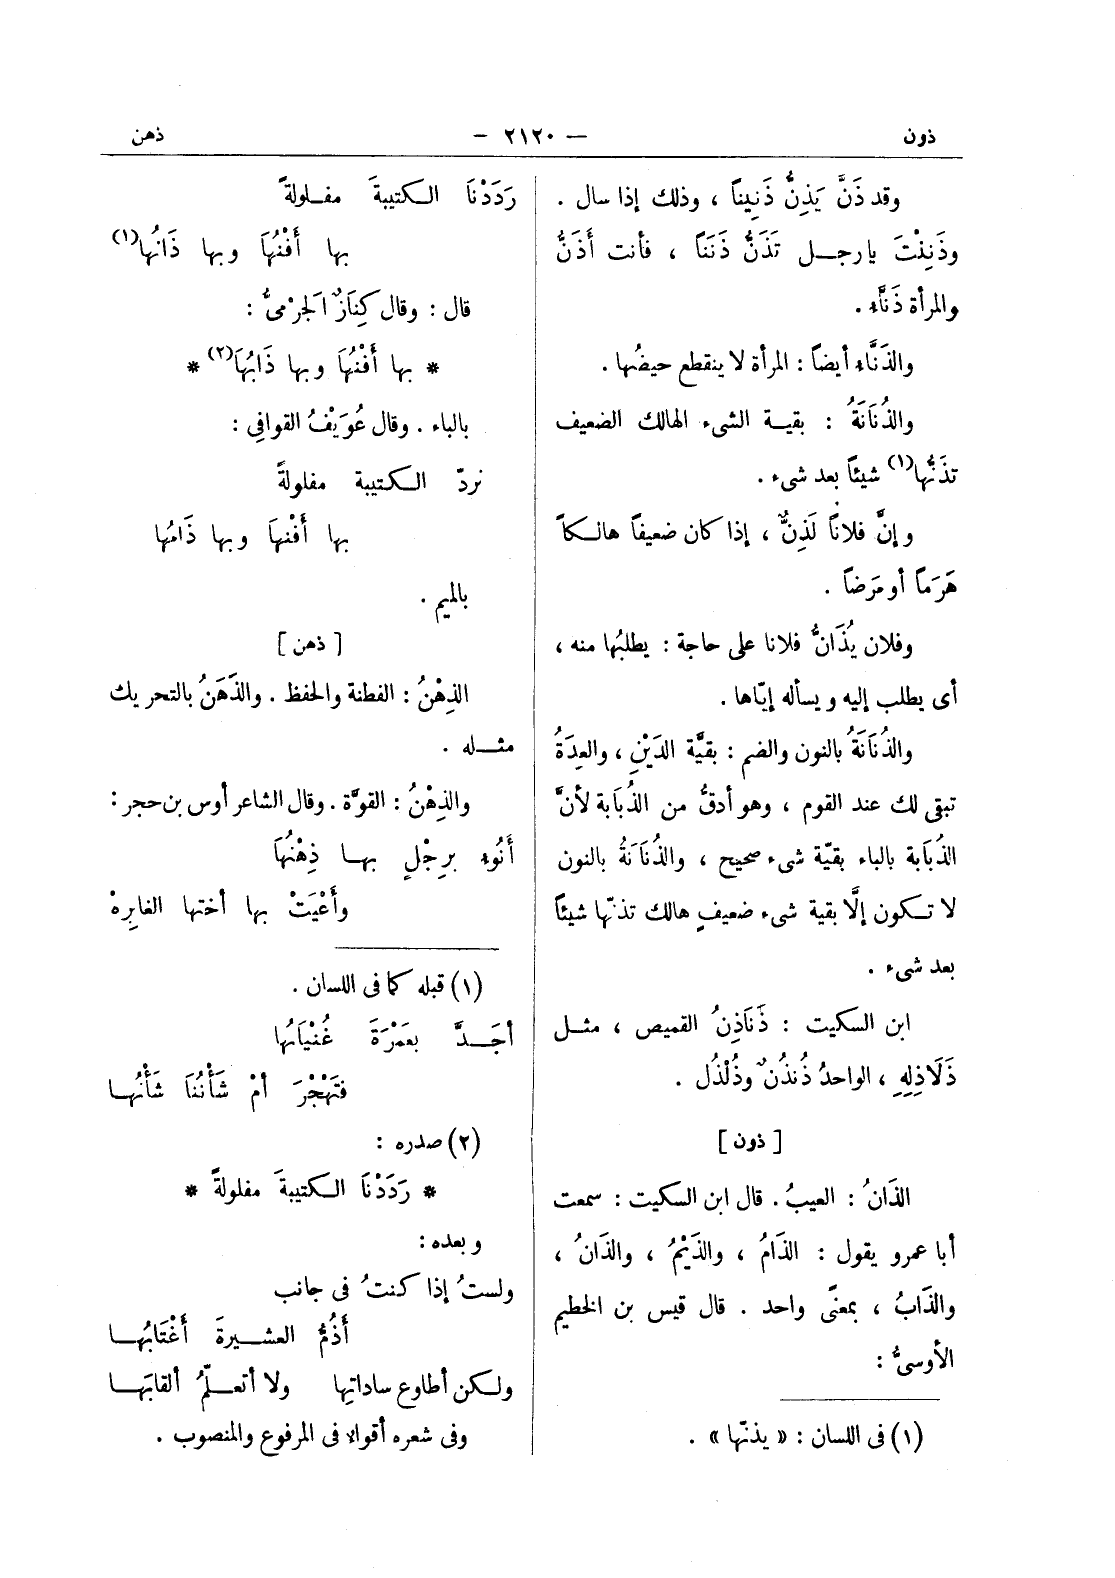 ذون
— ٢١٢٠ —
ذهن
وقد ذَنَّ يَذِنُّ ذَنِيناً ، وذلك إذا سال .
وذَنِنْتَ يا رجل تَذَنُّ ذَنَناً ، فأنت أَذَنُّ
والمرأة ذَنَّاء .
والذَنَّاء أيضاً : المرأة لا ينقطع حيضُها .
والذُنَانَةُ : بقية الشىء الهالك الضعيف
تَذُنُّها(١) شيئاً بعد شىء .
وإنَّ فلاناً لَذِنٌّ ، إذا كان ضعيفاً هالكاً
هَرَماً أو مَرَضاً .
وفلان يُذَانُّ فلانا على حاجة : يطلبُها منه ،
أى يطلب إليه ويسأله إيّاها .
والذُنَانَةُ بالنون والضم : بقيَّة الدَيْنِ ، والعِدَةُ
تبقى لك عند القوم ، وهو أدقُّ من الذُبَابة لأنَّ
الذُبَابة بالباء بقيّة شىء صحيح ، والذُنَانَةُ بالنون
لا تكون إلَّا بقية شىء ضعيفٍ هالك تذنّها شيئاً
بعد شىء .
ابن السكيت : ذَنَاذِنُ القميص ، مثل
ذَلَاذِلِهِ ، الواحدُ ذُنذُنٌ وذُلْذُل .
[ ذون ]
الذَانُ : العيبُ . قال ابن السكيت : سمعت
أبا عمرو يقول : الذَامُ ، والذَيْمُ ، والذَانُ ،
والذَابُ ، بمعنًى واحد . قال قيس بن الخطيم
الأوسىُّ :
(١) فى اللسان : « يذنّها » .
رَدَدْنَا الكتيبةَ مفلولةً
بها أَفْنُهَا وبها ذَانُها(١)
قال : وقال كِنَازٌ الجَرْمىُّ :
* بها أَفْنُهَا وبها ذَابُهَا(٢) *
بالباء . وقال عُوَيْفُ القوافى :
نردّ الكتيبة مفلولةً
بها أَفْنهَا وبها ذَامُها
بالميم .
[ ذهن ]
الذِهْنُ : الفطنة والحفظ . والذَهَنُ بالتحريك
مثله .
والذِهْنُ : القوَّة . وقال الشاعر أوس بن حجر :
أَنُوء برِجْلٍ بها ذِهْنُهَا
وأَعْيَتْ بها أختها الغابِرهْ
(١) قبله كما فى اللسان .
أجَدَّ بعَمْرَةَ غُنْيَانُها
فتَهْجُرَ أمْ شَأْنُنَا شَأْنُها
(٢) صدره :
* رَدَدْنَا الكتيبةَ مفلولةً *
وبعده :
ولستُ إذا كنتُ فى جانب
أَذُمُّ العشيرةَ أَغْتَابُها
ولكن أطاوع ساداتِها ولا أتعلّمُ ألقابَها
وفى شعره أقواء فى المرفوع والمنصوب .